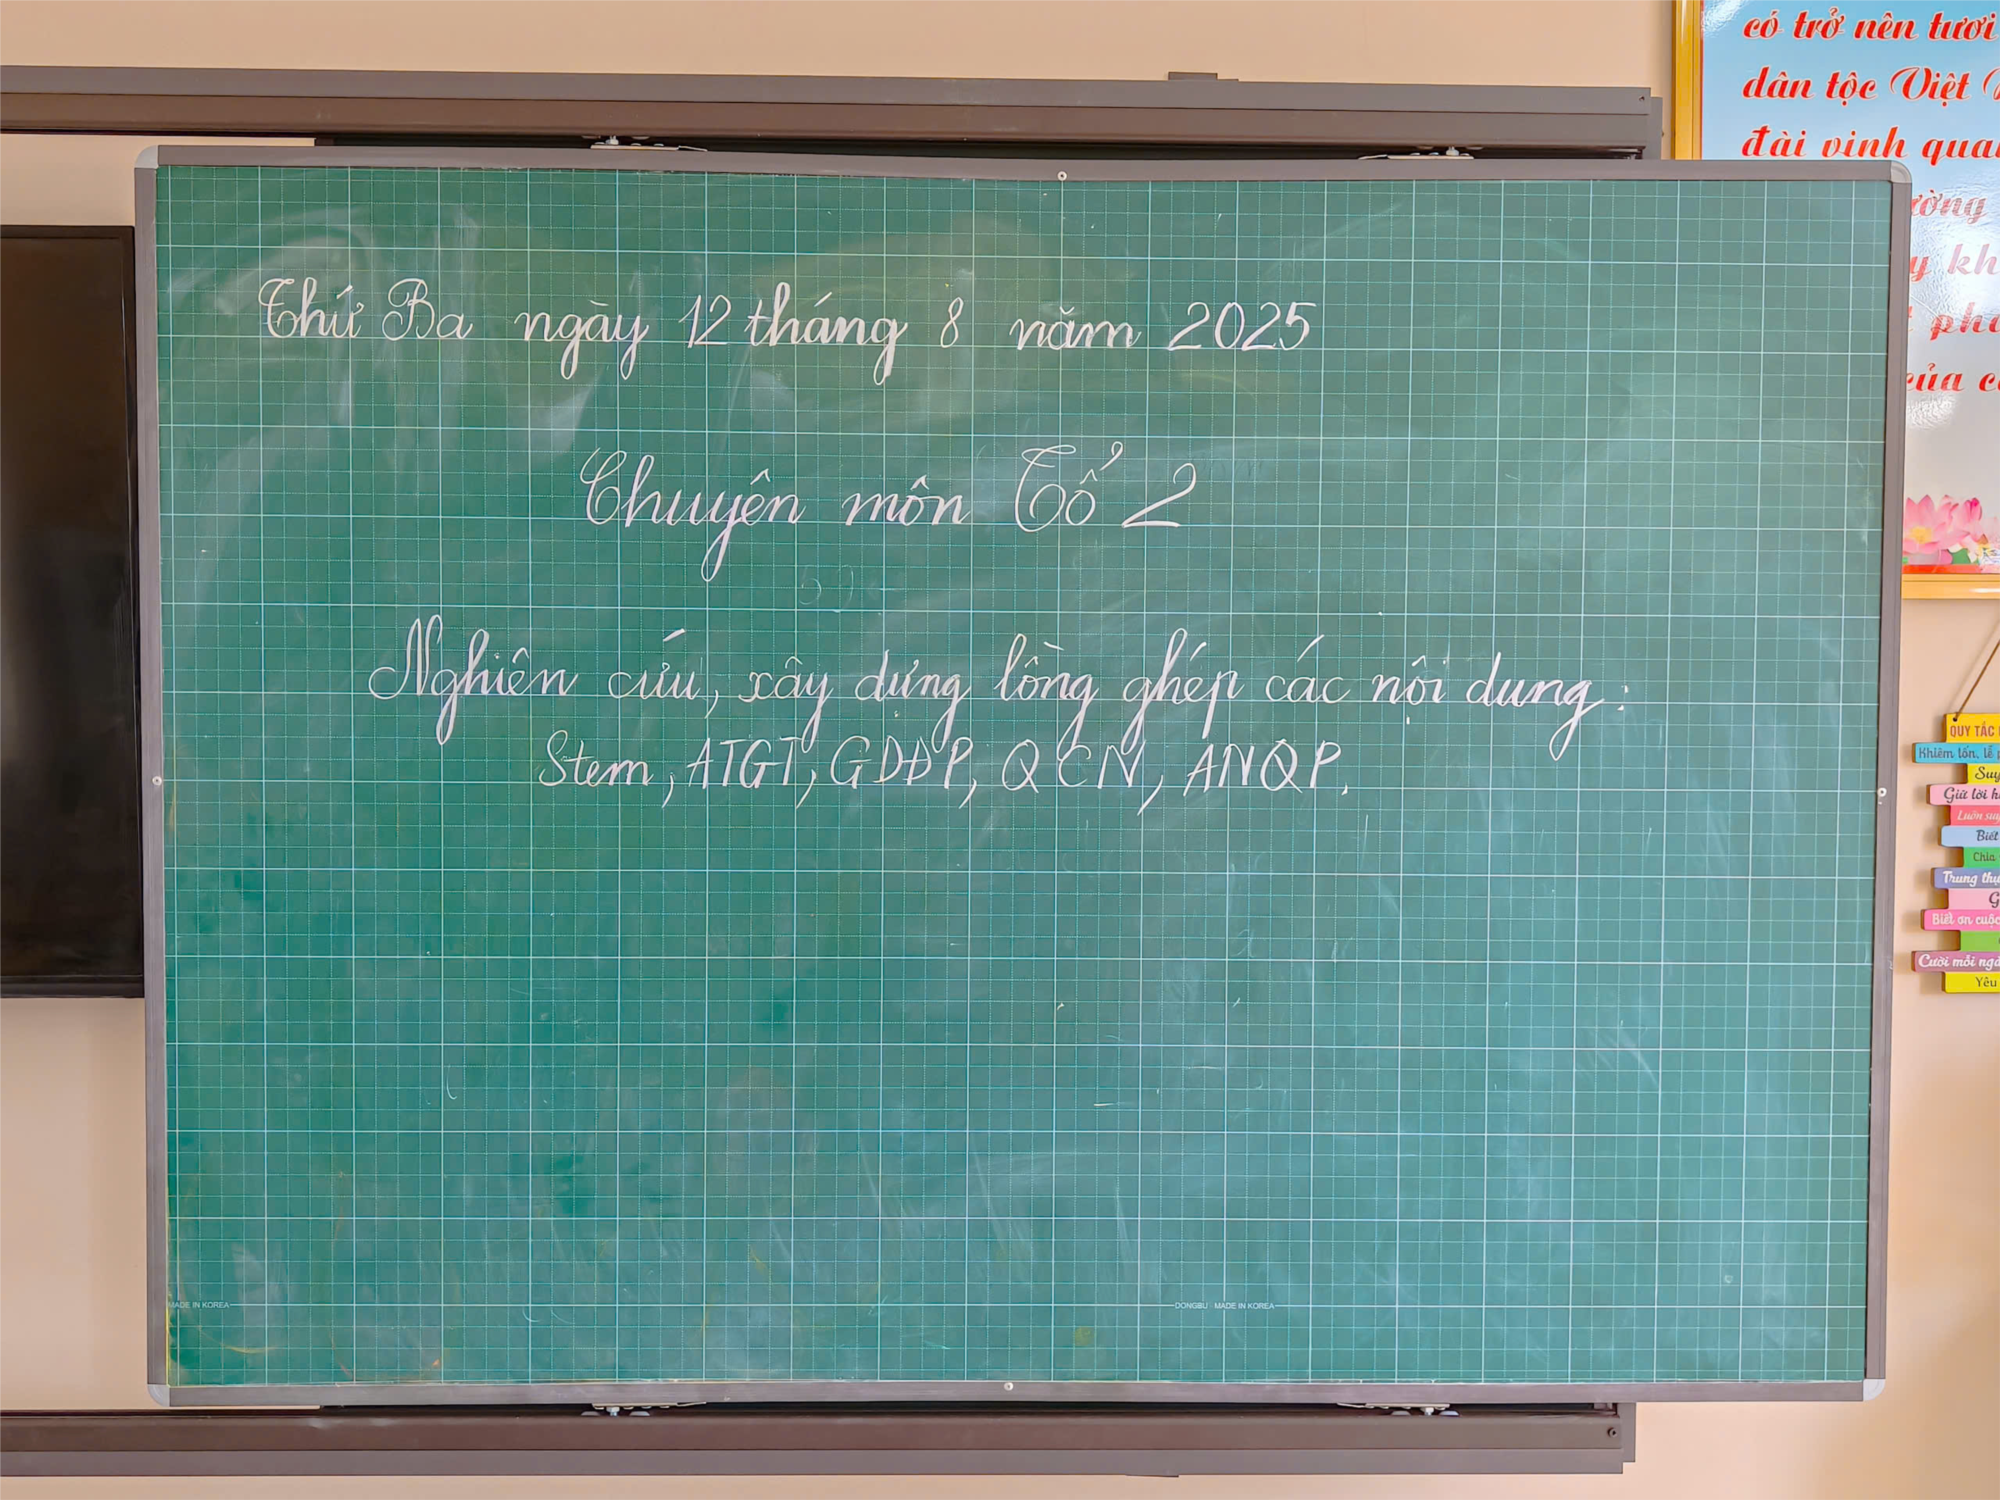 Thứ Ba ngày 12 tháng 8 năm 2025
Chuyên môn Tổ 2
Nghiên cứu, xây dựng lồng ghép các nội dung:
Stem, ATGT, GDĐP, QCN, ANQP.
MADE IN KOREA
DONGBU MADE IN KOREA
có trở nên tươi
dân tộc Việt
đài vinh
của
QUY TẮC
Khiêm tốn, lễ
Suy
Giữ lời
Luôn suy
Biết
Chia
Trung thực
Biết ơn cuộc
Cười mỗi ngày
Yêu